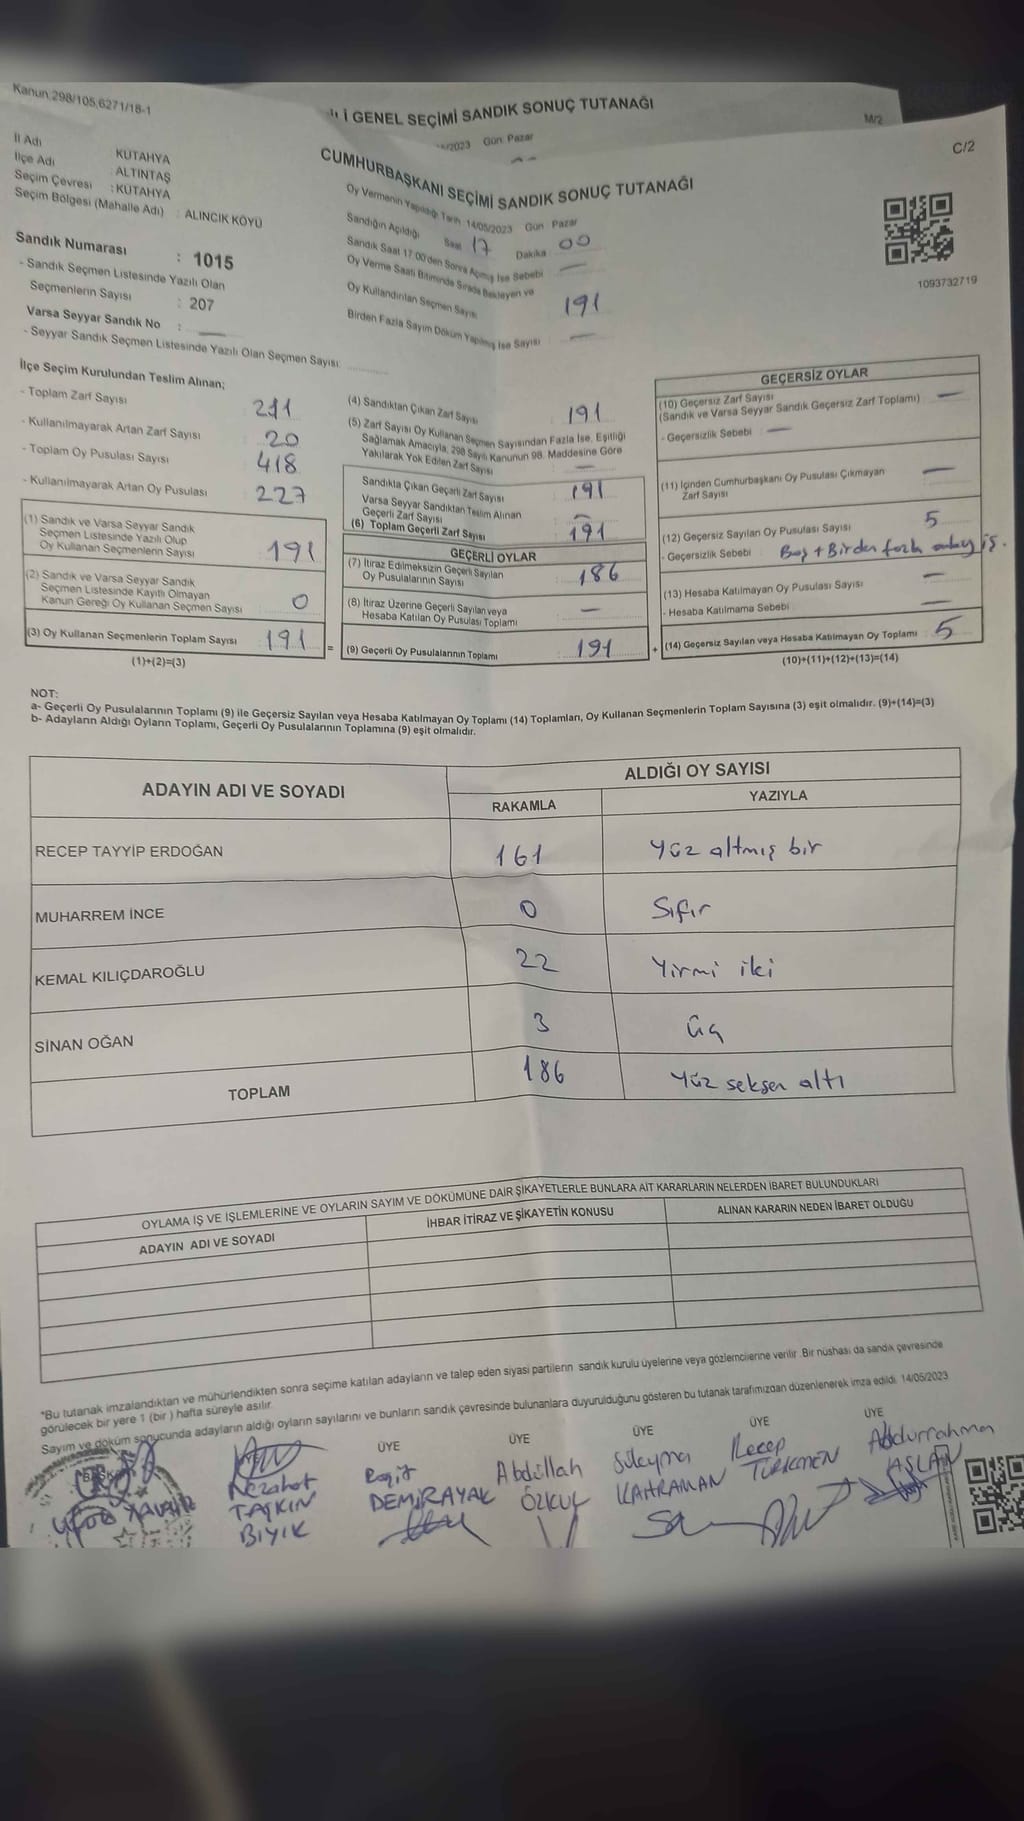 Kanun:298/105,6271/18-1
İ GENEL SEÇİMİ SANDIK SONUÇ TUTANAĞI
M/2
/2023 Gün: Pazar
C/2
CUMHURBAŞKANI SEÇİMİ SANDIK SONUÇ TUTANAĞI
İl Adı KÜTAHYA
İlçe Adı : ALTINTAŞ
Seçim Çevresi : KÜTAHYA
Seçim Bölgesi (Mahalle Adı) : ALINCIK KÖYÜ
Sandık Numarası : 1015
- Sandık Seçmen Listesinde Yazılı Olan
Seçmenlerin Sayısı : 207
Varsa Seyyar Sandık No :
- Seyyar Sandık Seçmen Listesinde Yazılı Olan Seçmen Sayısı
Oy Vermenin Yapıldığı Tarih 14/05/2023 Gün Pazar
Sandığın Açıldığı Saat 17 Dakika 00
Sandık Saat 17.00'den Sonra Açılmış İse Sebebi
Oy Verme Saati Bitiminde Sırada Bekleyen ve
Oy Kullandırılan Seçmen Sayısı 191
Birden Fazla Sayım Döküm Yapılmış İse Sayısı
1093732719
İlçe Seçim Kurulundan Teslim Alınan;
- Toplam Zarf Sayısı 211
- Kullanılmayarak Artan Zarf Sayısı 20
- Toplam Oy Pusulası Sayısı 418
- Kullanılmayarak Artan Oy Pusulası 227
(1) Sandık ve Varsa Seyyar Sandık
Seçmen Listesinde Yazılı Olup
Oy Kullanan Seçmenlerin Sayısı 191
(2) Sandık ve Varsa Seyyar Sandık
Seçmen Listesinde Kayıtlı Olmayan
Kanun Gereği Oy Kullanan Seçmen Sayısı 0
(3) Oy Kullanan Seçmenlerin Toplam Sayısı 191 =
(1)+(2)=(3)
(4) Sandıktan Çıkan Zarf Sayısı 191
(5) Zarf Sayısı Oy Kullanan Seçmen Sayısından Fazla İse, Eşitliği
Sağlamak Amacıyla, 298 Sayılı Kanunun 98. Maddesine Göre
Yakılarak Yok Edilen Zarf Sayısı
Sandıkta Çıkan Geçerli Zarf Sayısı 191
Varsa Seyyar Sandıktan Teslim Alınan
Geçerli Zarf Sayısı
(6) Toplam Geçerli Zarf Sayısı 191
GEÇERLİ OYLAR
(7) İtiraz Edilmeksizin Geçerli Sayılan
Oy Pusulalarının Sayısı 186
(8) İtiraz Üzerine Geçerli Sayılan veya
Hesaba Katılan Oy Pusulası Toplamı
(9) Geçerli Oy Pusulalarının Toplamı 191 +
GEÇERSİZ OYLAR
(10) Geçersiz Zarf Sayısı
(Sandık ve Varsa Seyyar Sandık Geçersiz Zarf Toplamı)
- Geçersizlik Sebebi
(11) İçinden Cumhurbaşkanı Oy Pusulası Çıkmayan
Zarf Sayısı
(12) Geçersiz Sayılan Oy Pusulası Sayısı 5
- Geçersizlik Sebebi Boş + Birden fazla
(13) Hesaba Katılmayan Oy Pusulası Sayısı
- Hesaba Katılmama Sebebi
(14) Geçersiz Sayılan veya Hesaba Katılmayan Oy Toplamı 5
(10)+(11)+(12)+(13)=(14)
NOT:
a- Geçerli Oy Pusulalarının Toplamı (9) ile Geçersiz Sayılan veya Hesaba Katılmayan Oy Toplamı (14) Toplamları, Oy Kullanan Seçmenlerin Toplam Sayısına (3) eşit olmalıdır. (9)+(14)=(3)
b- Adayların Aldığı Oyların Toplamı, Geçerli Oy Pusulalarının Toplamına (9) eşit olmalıdır.
ADAYIN ADI VE SOYADI
ALDIĞI OY SAYISI
RAKAMLA YAZIYLA
RECEP TAYYİP ERDOĞAN 161 Yüz altmış bir
MUHARREM İNCE 0 Sıfır
KEMAL KILIÇDAROĞLU 22 Yirmi iki
SİNAN OĞAN 3 Üç
TOPLAM 186 Yüz seksen altı
OYLAMA İŞ VE İŞLEMLERİNE VE OYLARIN SAYIM VE DÖKÜMÜNE DAİR ŞİKAYETLERLE BUNLARA AİT KARARLARIN NELERDEN İBARET BULUNDUKLARI
ADAYIN ADI VE SOYADI İHBAR İTİRAZ VE ŞİKAYETİN KONUSU ALINAN KARARIN NEDEN İBARET OLDUĞU
*Bu tutanak imzalandıktan ve mühürlendikten sonra seçime katılan adayların ve talep eden siyasi partilerin sandık kurulu üyelerine veya gözlemcilerine verilir. Bir nüshası da sandık çevresinde
görülecek bir yere 1 (bir) hafta süreyle asılır.
Sayım ve döküm sonucunda adayların aldığı oyların sayılarını ve bunların sandık çevresinde bulunanlara duyurulduğunu gösteren bu tutanak tarafımızdan düzenlenerek imza edildi. 14/05/2023
ÜYE ÜYE ÜYE ÜYE ÜYE
Nezahat TAŞKIN BIYIK
Raşit DEMİRAYAK
Abdullah ÖZKUL
Süleyman KAHRAMAN
Recep TÜRKMEN
Abdurrahman ASLAN